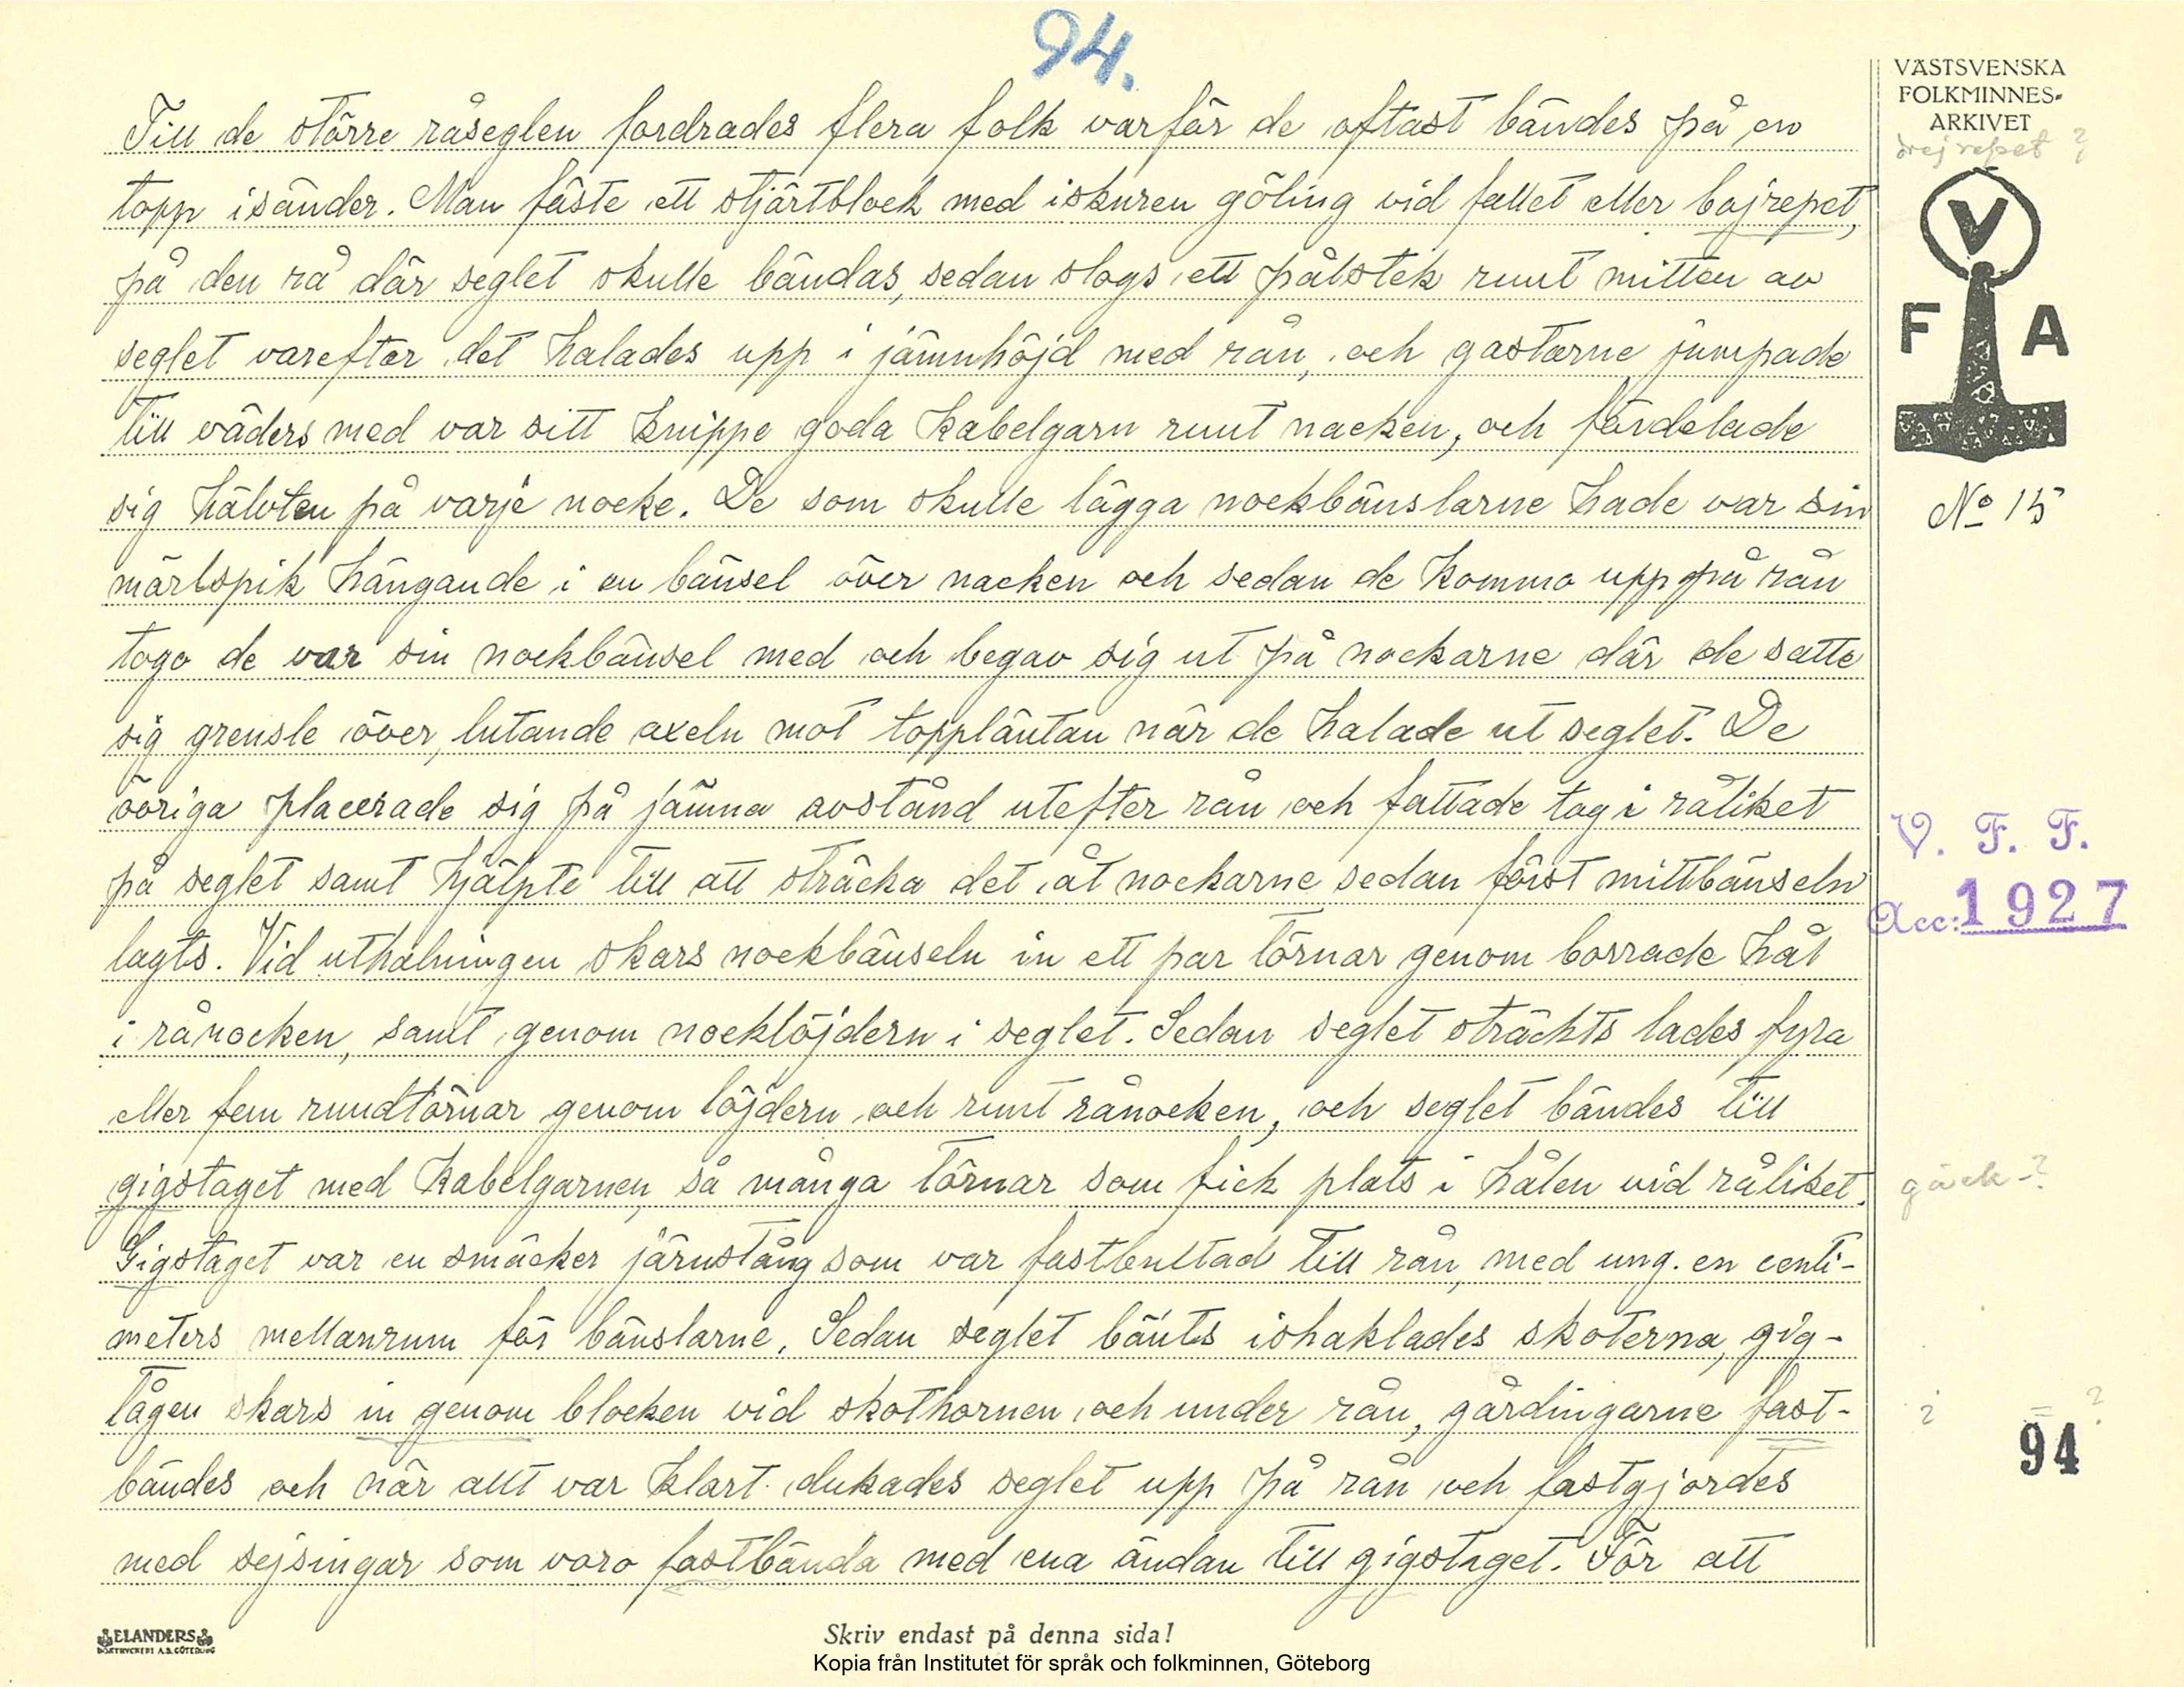 94.
Till de större råseglen fordrades flera folk varför de oftast bändes på en
topp isänder. Man fäste ett stjärtblock med iskuren göling vid fallet eller bojrepet,
på den rå där seglet skulle bändas, sedan slogs ett pålstek runt mitten av
seglet varefter det halades upp i jämnhöjd med rån, och gastarne jumpade
till väders med var sitt knippe goda kabelgarn runt nacken, och fördelade
sig hälvten på varje nocke. De som skulle lägga nockbänslarne hade var sin
märlspik hängande i en bänsel över nacken och sedan de kommo upp på rån
togo de var sin nockbänsel med och begav sig ut på nockarne där de satte
sig grensle över, lutande axeln mot toppläntan när de halade ut seglet. De
övriga placerade sig på jämna avstånd utefter rån och fattade tag i råliket
på seglet samt hjälpte till att sträcka det åt nockarne sedan först mittbänseln
lagts. Vid uthalningen skars nockbänseln in ett par törnar genom borrade hål
i rånocken, samt genom nocklöjdern i seglet. Sedan seglet sträckts lades fyra
eller fem rundtörnar genom löjdern och runt rånocken, och seglet bändes till
gigstaget med kabelgarnen, så många törnar som fick plats i hålen vid råliket.
Gigstaget var en smäcker järnstång som var fastbultad till rån, med ung. en centi-
meters mellanrum för bänslarne. Sedan seglet bänts ishaklades skoterna, gig-
tågen skars in genom blocken vid skothornen och under rån, gårdingarne fast-
bändes och när allt var klart dukades seglet upp på rån och fastgjordes
med sejsingar som voro fastbända med ena ändan till gigstaget. För att
VÄSTSVENSKA
FOLKMINNES-
ARKIVET
drejrepet ?
V
F A
No 15
V. F. F.
Acc: 1927
gäck-?
?
?
94
ELANDERS
BOKTRYCKERI A.B. GÖTEBORG
Skriv endast på denna sida!
Kopia från Institutet för språk och folkminnen, Göteborg